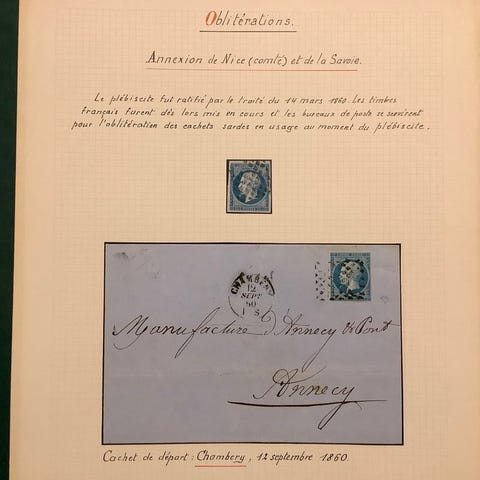 Oblitérations.
Annexion de Nice (comté) et de la Savoie.
Le plébiscite fut ratifié par le traité du 14 mars 1860. Les timbres
français furent dès lors mis en cours et les bureaux de poste se servirent
pour l'oblitération des cachets sardes en usage au moment du plébiscite.
CHAMBERY
12
SEPT
60
Manufacture d'Annecy & Pont
Annecy
Cachet de départ : Chambery, 12 septembre 1860.